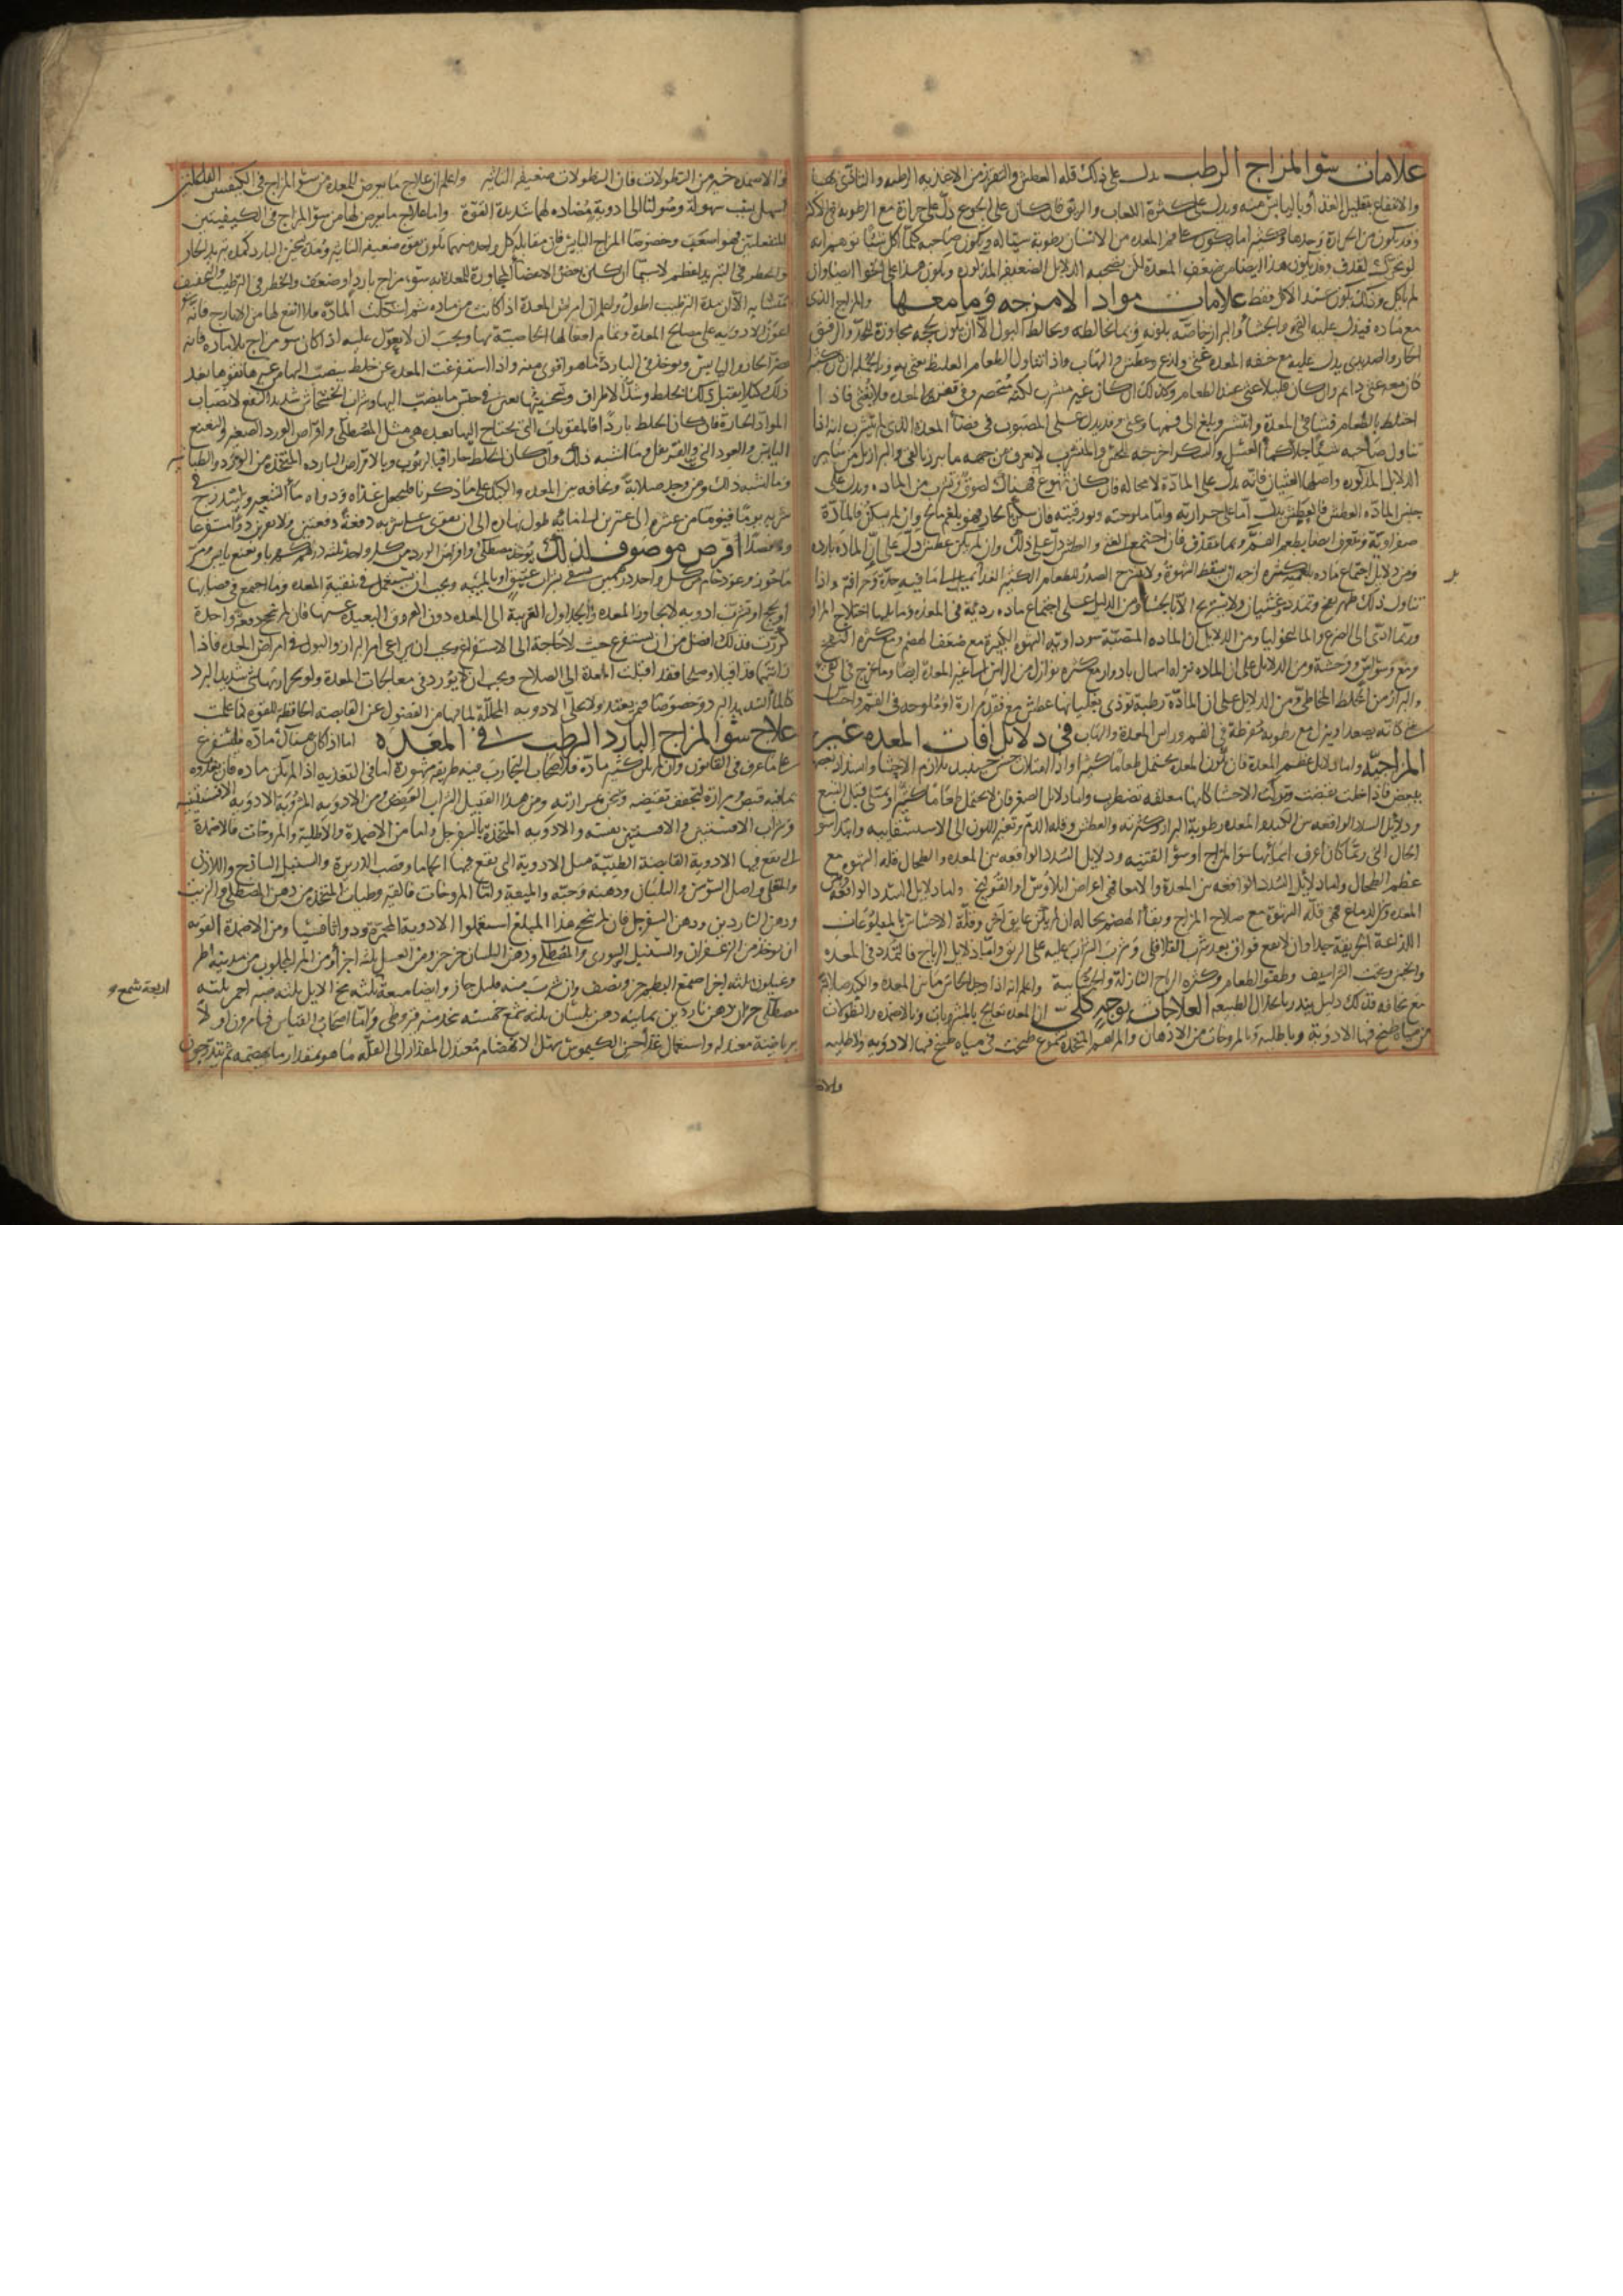 علامات سوٓ المزاج الرطب يدل على ذلك قله العطش والنفور من الاغذيه الرطبه والتاذى بها
والانتفاع بتقليل الغذا وبالىابس منه ويدل على كثرة اللعاب والريق فان كان على الجوع دل على حرارة مع الرطوبه
وقد يكون من الحرارة وحدها وكثيرا ما يكون على فم المعده من الانسان رطوبة سيالة ويكون صاحبه كلما اكل شيئا توهم انه
لو تحرك لقذف وقد يكون هذا ايضا من ضعف المعدة لكن يصحبه الدلايل الضعيفه المذكوره ويكون هذا على الخوا ايضا وان
لم ياكل وذلك يكون عند الاكل فقط علامات مواد الامزجه وما معها والمزاج الذى
مع ماده فيدل عليه القى والجشأ والبراز خاصة بلونه وبما يخالطه ويخالط البول الا ان يكون لحجة مجاوزة للحد والرقيق
الحار والصديدى يدل عليه مع خفه المعده غثى ولذع وعطش والتهاب واذا تناول الطعام الغليظ
كان معه غثى دايم وان كان قليلا غثى عند الطعام وكذلك ان كان غير متشرب لكنه منحصر فى قعر المعده فلا يغثى فاذا
اختلط بالطعام فشا فى المعدة وانتشر وبلغ الى فمها وغثى وقد يدل على المصبوب فى فضا المعدة الذى لم يتشرب انه اذا
تناول صاحبه شيئا جلا كما العسل والسكر اخرجه
الدلايل المذكوره واصلها الغثيان فانه يدل على المادة لا محاله فان كان تهوع فهناك لصوق وتشرب من الماده ويدل على
جنس المادة العطش فالعطش يدل اما على حرارته واما ملوحته وبورقيته فان سكن بالحار فهو بلغم مالح وان لم يسكن فالمادة
صفراوية ويتعرف ايضا بطعم الفم وبما يقذف فان اجتمع الغثى والعطش دل على ذلك وان لم يكن عطش دل على ان المادة بارده
ومن دلايل اجتماع ماده كثيره لزجه ان يسقط الشهوة ولا ينشرح الصدر للطعام الكثير الغذا بل يميل الى ما فيه حدة وحرافة واذا
تناول ذلك ظهر نفخ وتمدد وغثيان ولا يستريح الا بالجشا ومن الدليل على اجتماع ماده رديئة فى المعده وما يليها اختلاج المراق
وربما ادى الى الصرع والماليخوليا ومن الدلايل ان الماده المنصبة سوداويه الشهوة الكثيرة مع ضعف الهضم ومع كثره النفخ
ومع وسواس ووحشة ومن الدلايل على ان الماده نزله اسهال بادوار مع كثره نوازل من الراس الى غير المعدة ايضا وما يخرج فى القى
والبراز من الخلط المخاطى ومن الدلايل على ان المادة رطبة تؤذى بغليانها عطش مع فقدان مرارة او ملوحه فى الفم واحساس
شى كانه يصعد وينزل مع رطوبة مفرطة فى الفم وراس المعدة والتهاب فى دلايل افات المعده غير
المزاجيه واما دلايل عظم المعدة فان تكون المعده يحتمل طعاما كثيرا واذا امتلات حس حينئذ بتلازم الاحشا واستداد بعضها
ببعض فاذا خلت تقبضت وتركت الاحشا كانها معلقه تضطرب واما دلايل الصغر فان لا يحتمل طعاما كثيرا ويمتلى قبل الشبع
ودلايل السدد الواقعه بين الكبد والمعده رطوبة البراز وكثرته والعطش وقله الدم وتغير اللون الى الاستسقاييه وابتدا سو
الحال التى ربما كان اعرف اسمائها سوٓ المزاج او سوٓ القنيه ودلايل السدد الواقعه بين المعده والطحال قله الشهوه مع
عظم الطحال واما دلايل السدد الواقعه بين المعدة والامعا فهى اعراض ايلاوس او القولنج واما دلايل السدد الواقعه
المعده والدماغ فهى قلة الشهوة مع صلاح المزاج وبقأ الهضم بحاله ان لم يكن عايق اخر وقلة الاحساس بالمبلوعات
اللذاعة الحريفة جدا وان لا يقع فواق بعد شرب الفلافلى وشرب الشراب عليه على الريق واما دلايل الرياح فالتمدد فى المعده
والجنبين وتحت الشراسيف وطفو الطعام وكثره الرياح النازلة والجشائية واعلم انه اذا وجد الحابس ما بين المعده والكبد صلابه
مع نحافه فذلك دليل ينذر بانحلال الطبيعه العلاجات بوجه كلى ان المعده تعالج بالمشروبات وبالاضمده والنطولات
من مياه طبخ فيها الادوية وباطليه وبالمروخات من الادهان والمراهم المتخذة بشموع طبخت فى مياه طبخ فيها الادويه والاطليه
والا
والاضمده خير من النطولات فان النطولات ضعيفه التاثير واعلم ان علاج ما يعرض للمعده من سو المزاج فى الكيفيتين الفاعلتين
اسهل بسبب سهولة وصولنا الى ادوية مضاده لها شديدة القوة واما علاج ما يعرض لها من سوٓ المزاج فى الكيفيتين
المنفعلتين فهو اصعب وخصوصا المزاج اليابس فان مقابلة كل واحد منهما تكون بقوة ضعيفه التاثير ومدة تسخين البارد كمدة تبريد الحار
والخطر فى التبريد اعظم لا سيما ان كان بعض الاعضأ المجاورة للمعدة به سوٓ مزاج بارد او ضعف والخطر فى الترطيب والتجفيف
متشابه الا ان مدة الترطيب اطول واعلم ان امراض المعدة اذا كانت من ماده ثم اشكلت المادة فلا انفع لها من الايارج فانه
اعون الادويه على مصالح المعدة وتمام افعالها لخاصية بها ويجب ان لا يعول عليه اذا كان سو مزاج بلا ماده فانه
يضر الحار واليابس ويوجد فى البارد ما هو اقوى منه واذا استفرغت المعده عن خلط ينصب اليها من غيرها فقوها بعد
ذلك كيلا يقبل ذلك الخلط وشد الاطراف وتسخينها يعين فى حبس ما ينصب اليها وشراب الخشخاش شديد النفع لانصباب
المواد الحارة فان كان الخلط باردا فالمقويات التى يحتاج اليها بعده هى مثل المصطكى واقراص الورد الصغير والنعنع
اليابس والعود النى والقرنفل وما اشبه ذلك وان كان الخلط حارا فبالربوب وبالاقراص البارده المتخذه من الورد والطباشير
وما اشبه ذلك ومن وجد صلابة ونحافه بين المعده والكبد على ما ذكرنا فليجعل غذاه ودواه مأ الشعير وليتدرج فى
شربه يوما فيوما من عشره الى عشرين الى طول نهاره الى ان يقوى على شربه دفعة دفعتين ولا يقربن دوأ مستفرغا
ولا فصدا اقرص موصوف لذلك يوخذ مصطكى واقراص الورد من كل واحد ثلثه دراهم كهربا ونعنع يابس مر
ماخوز وعود خام من كل واحد درهمين يسقى بشراب عتيق او بالميبه ويجب ان يستعمل فى تنقية المعده وما اجتمع فى فضايها
او لحج او تشرب ادويه لا يجاوز المعده والجداول القريبة الى المعده دون العروق البعيده عنها فان لم تنجح دفعة واحدة
كررت فذلك افضل من ان يستفرغ حيث لا حاجة الى الاستفراغ ويجب ان يراعى امر البراز والبول فى امراض المعدة فاذا
رايتهما قد اقبلا وصلحا فقد اقبلت المعدة الى الصلاح ويجب ان لا يورد فى معالجات المعدة ولو لحرارتها شى شديد البرد
كالمأ الشديد البرد وخصوصا فيمن لم يعتد ولا تخلى الادويه المحللة لما فيها من الفضول عن القابضه الحافظه للقوه كما علمت
علاج سوٓ المزاج البارد الرطب فى المعده اما اذا كان هناك مادة فليستفرغ
على ما عرف فى القانون وان لم يكن كثير مادة فلاصحاب التجارب فيه طريقه مشهوره اما فى التغذيه اذا لم يكن ماده فان تغذوه
بما فيه قبض ومرارة لتجفف بقبضه وتسخن بمرارته ومن هذا القبيل الشراب العفص ومن الادويه المشروبة الادويه الافسنتينيه
وشراب الافسنتين والافسنتين نفسه والادويه المتخذة بالسفرجل واما من الاضمدة والاطلية والمروخات فالاضمدة
التى يقع فيها الادوية القابضة الطيبة مثل الادوية التى يقع فيها الحماما وقصب الذريرة والسنبل الساذج واللاذن
والمقل واصل السوسن والبلسان ودهنه وحبه والميعة واما المروخات فالقيروطيات المتخذه من دهن المصطكى والزيت
ودهن الناردين ودهن السفرجل فان لم ينجح هذا المبلغ استعملوا الادوية المحمرة ودوا ثافسيا ومن الاضمدة القويه
ان يوخذ من الزعفران والسنبل السورى والمصطكى ودهن البلسان جزجز ومن العسل ثلثه اجزأ ومن المر المجلوب من مدينه
وغيلون ثلثه اجزا صمغ البطم جز ونصف وان شرب منه قليل جاز وايضا ميعة ثلثه مخ الايل ثلثه
مصطكى جزان دهن ناردين ثمانيه دهن بلسان ثلثه شمع خمسه يتخذ منه قيروطى واما اصحاب القياس فيامرون اولا
برياضة معتدله واستعمال غذأ حسن الكيموس سهل الانهضام معتدل المقدار الى القله ما هو بمقدار ما يهضمه ثم يتدرجون
اربعة شمع